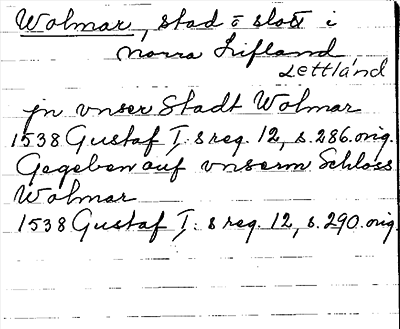 Wolmar, stad o slott i
norra Lifland
Lettland
jn vnser Stadt Wolmar
1538 Gustaf I:s reg. 12, s. 286. orig.
Gegeben auf vnserm Schloss
Wolmar
1538 Gustaf I:s reg. 12, s. 290. orig.